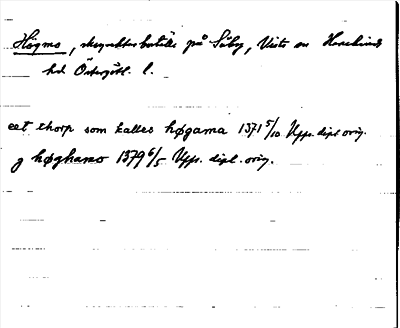 Högmo, skogvaktarboställe på Säby, Vists sn Hanekinds
hd Östergötl. l.
eet thorp som kalles høgama 1371 5/10 Upps. dipl orig.
j høghamo 1379 6/5 Upps. dipl. orig.